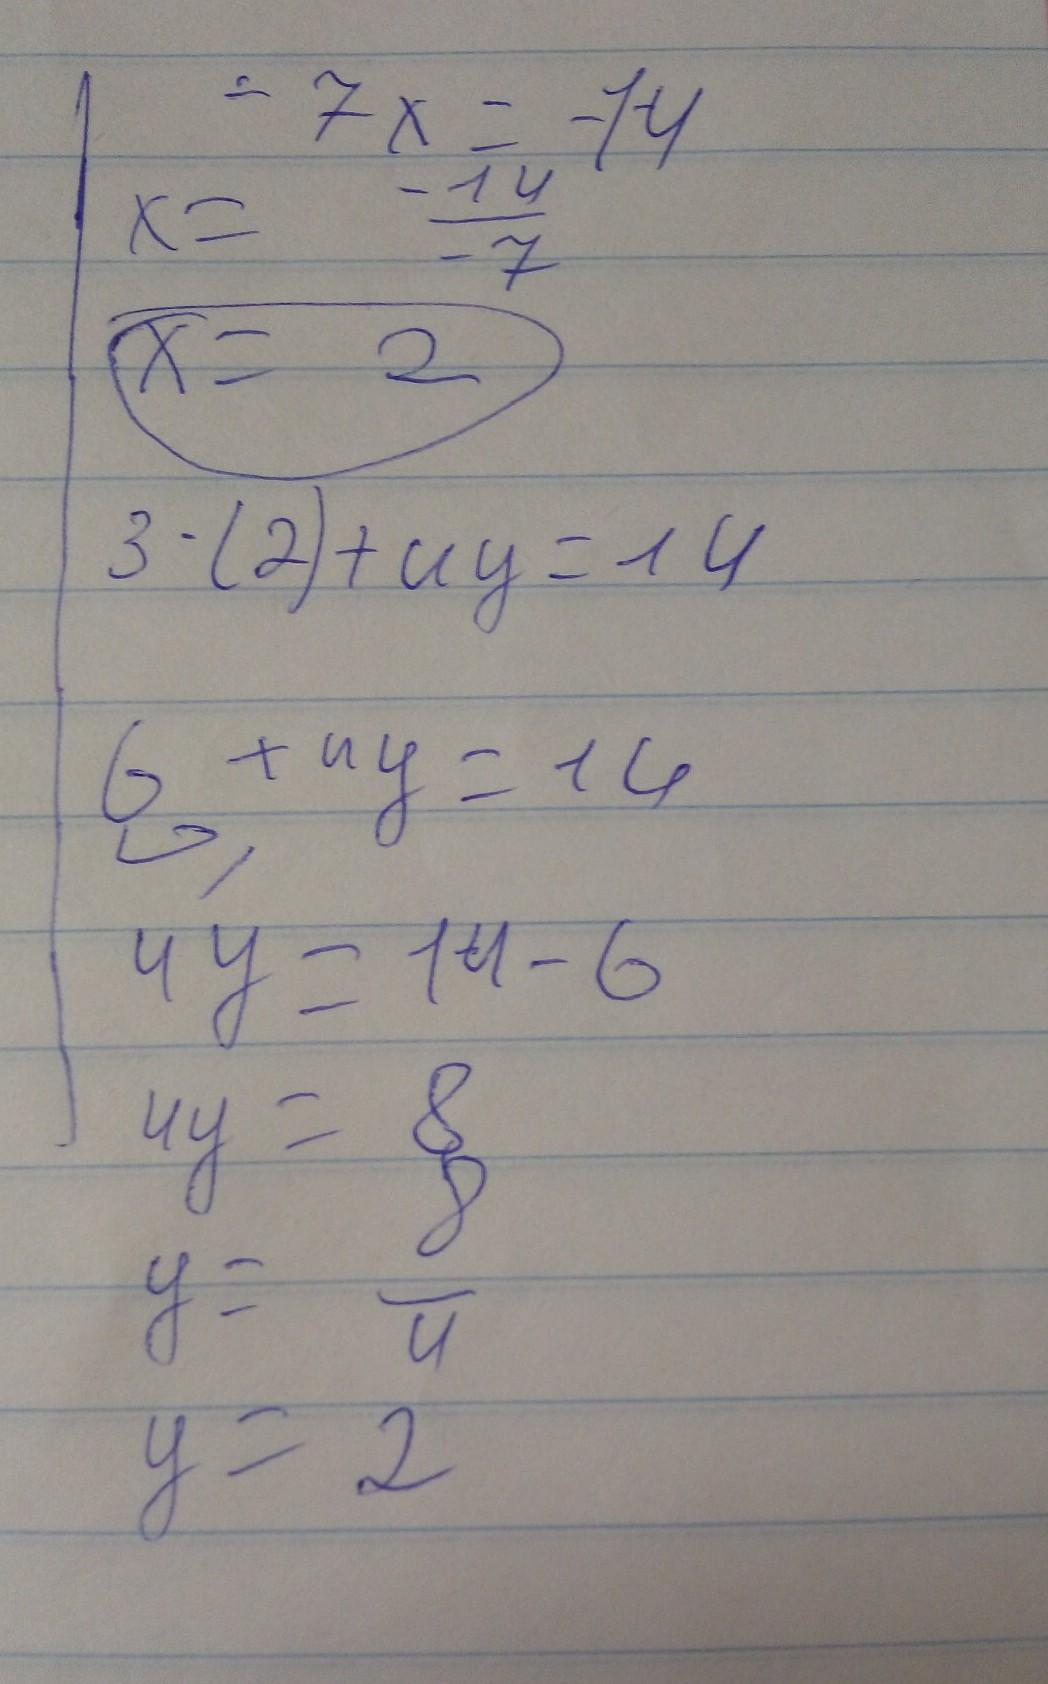 - 7x = -14
x = -14/-7
x = 2
3·(2)+4y=14
6 +4y=14
4y=14-6
4y = 8
y = 8/4
y = 2